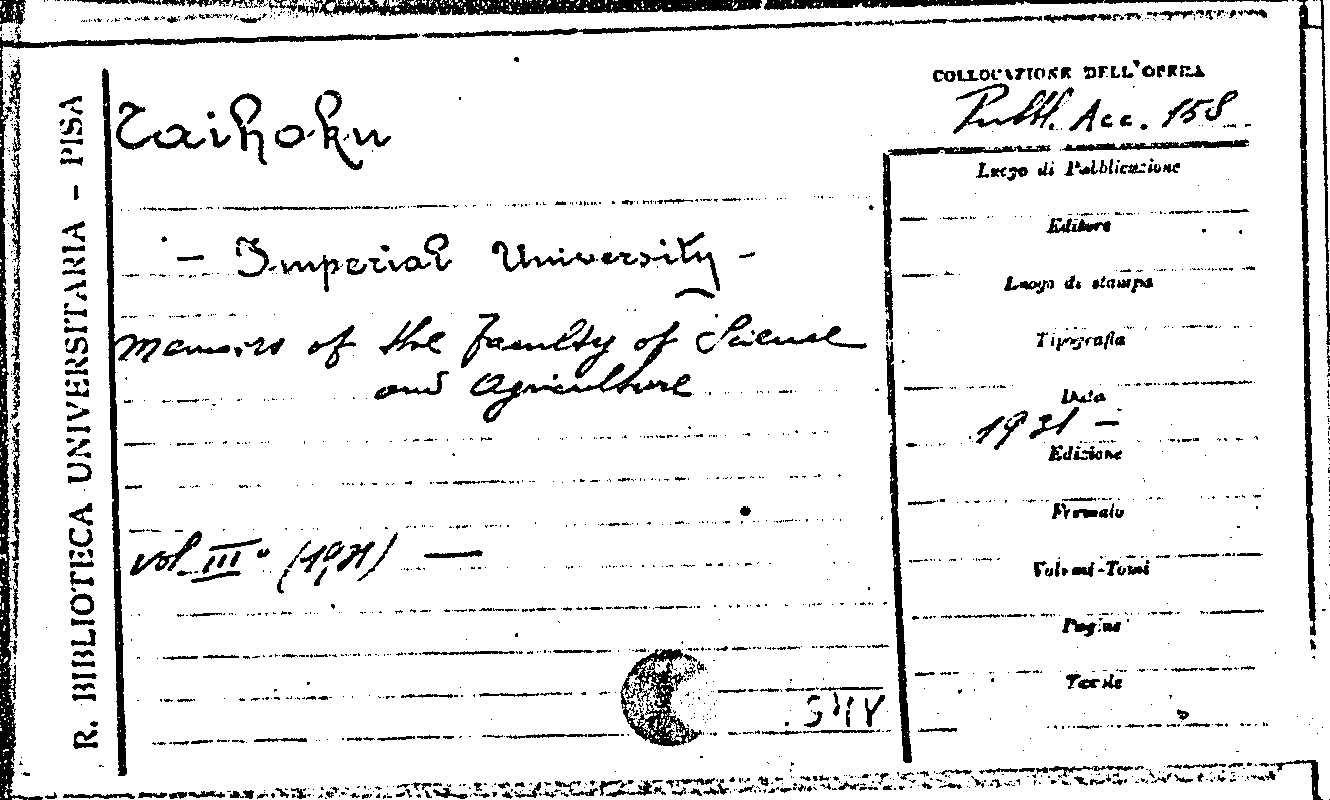 R. BIBLIOTECA UNIVERSITARIA - PISA
Taihoku
- Imperial University -
Memoirs of the Faculty of Science
and Agriculture
vol III° (1931) —
COLLOCAZIONE DELL'OPERA
Pubbl. Acc. 158
Luogo di Pubblicazione
Editore
Luogo di stampa
Tipografia
Data
1931 -
Edizione
Formato
Volumi-Tomi
Pagine
Tavole